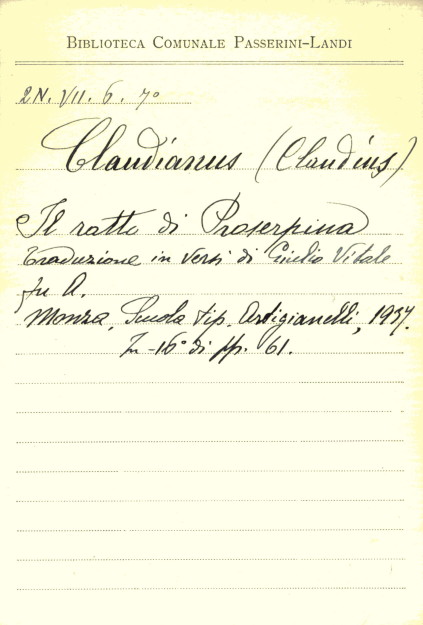 BIBLIOTECA COMUNALE PASSERINI-LANDI
2N. VII. 6. 7°
Claudianus (Claudius)
Il ratto di Proserpina
Traduzione in versi di Giulio Vitale
fu A.
Monza, Scuola tip. Artigianelli, 1937.
In-16° di pp. 61.